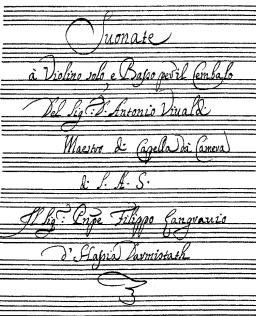 Suonate
à Violino solo e Basso per il Cembalo
Del Sig.r D. Antonio Vivaldi
Maestro di Capella dà Camera
di S. A. S.
Il Sig.r Prñpe Filippo Langravio
d'Hassia Darmistath